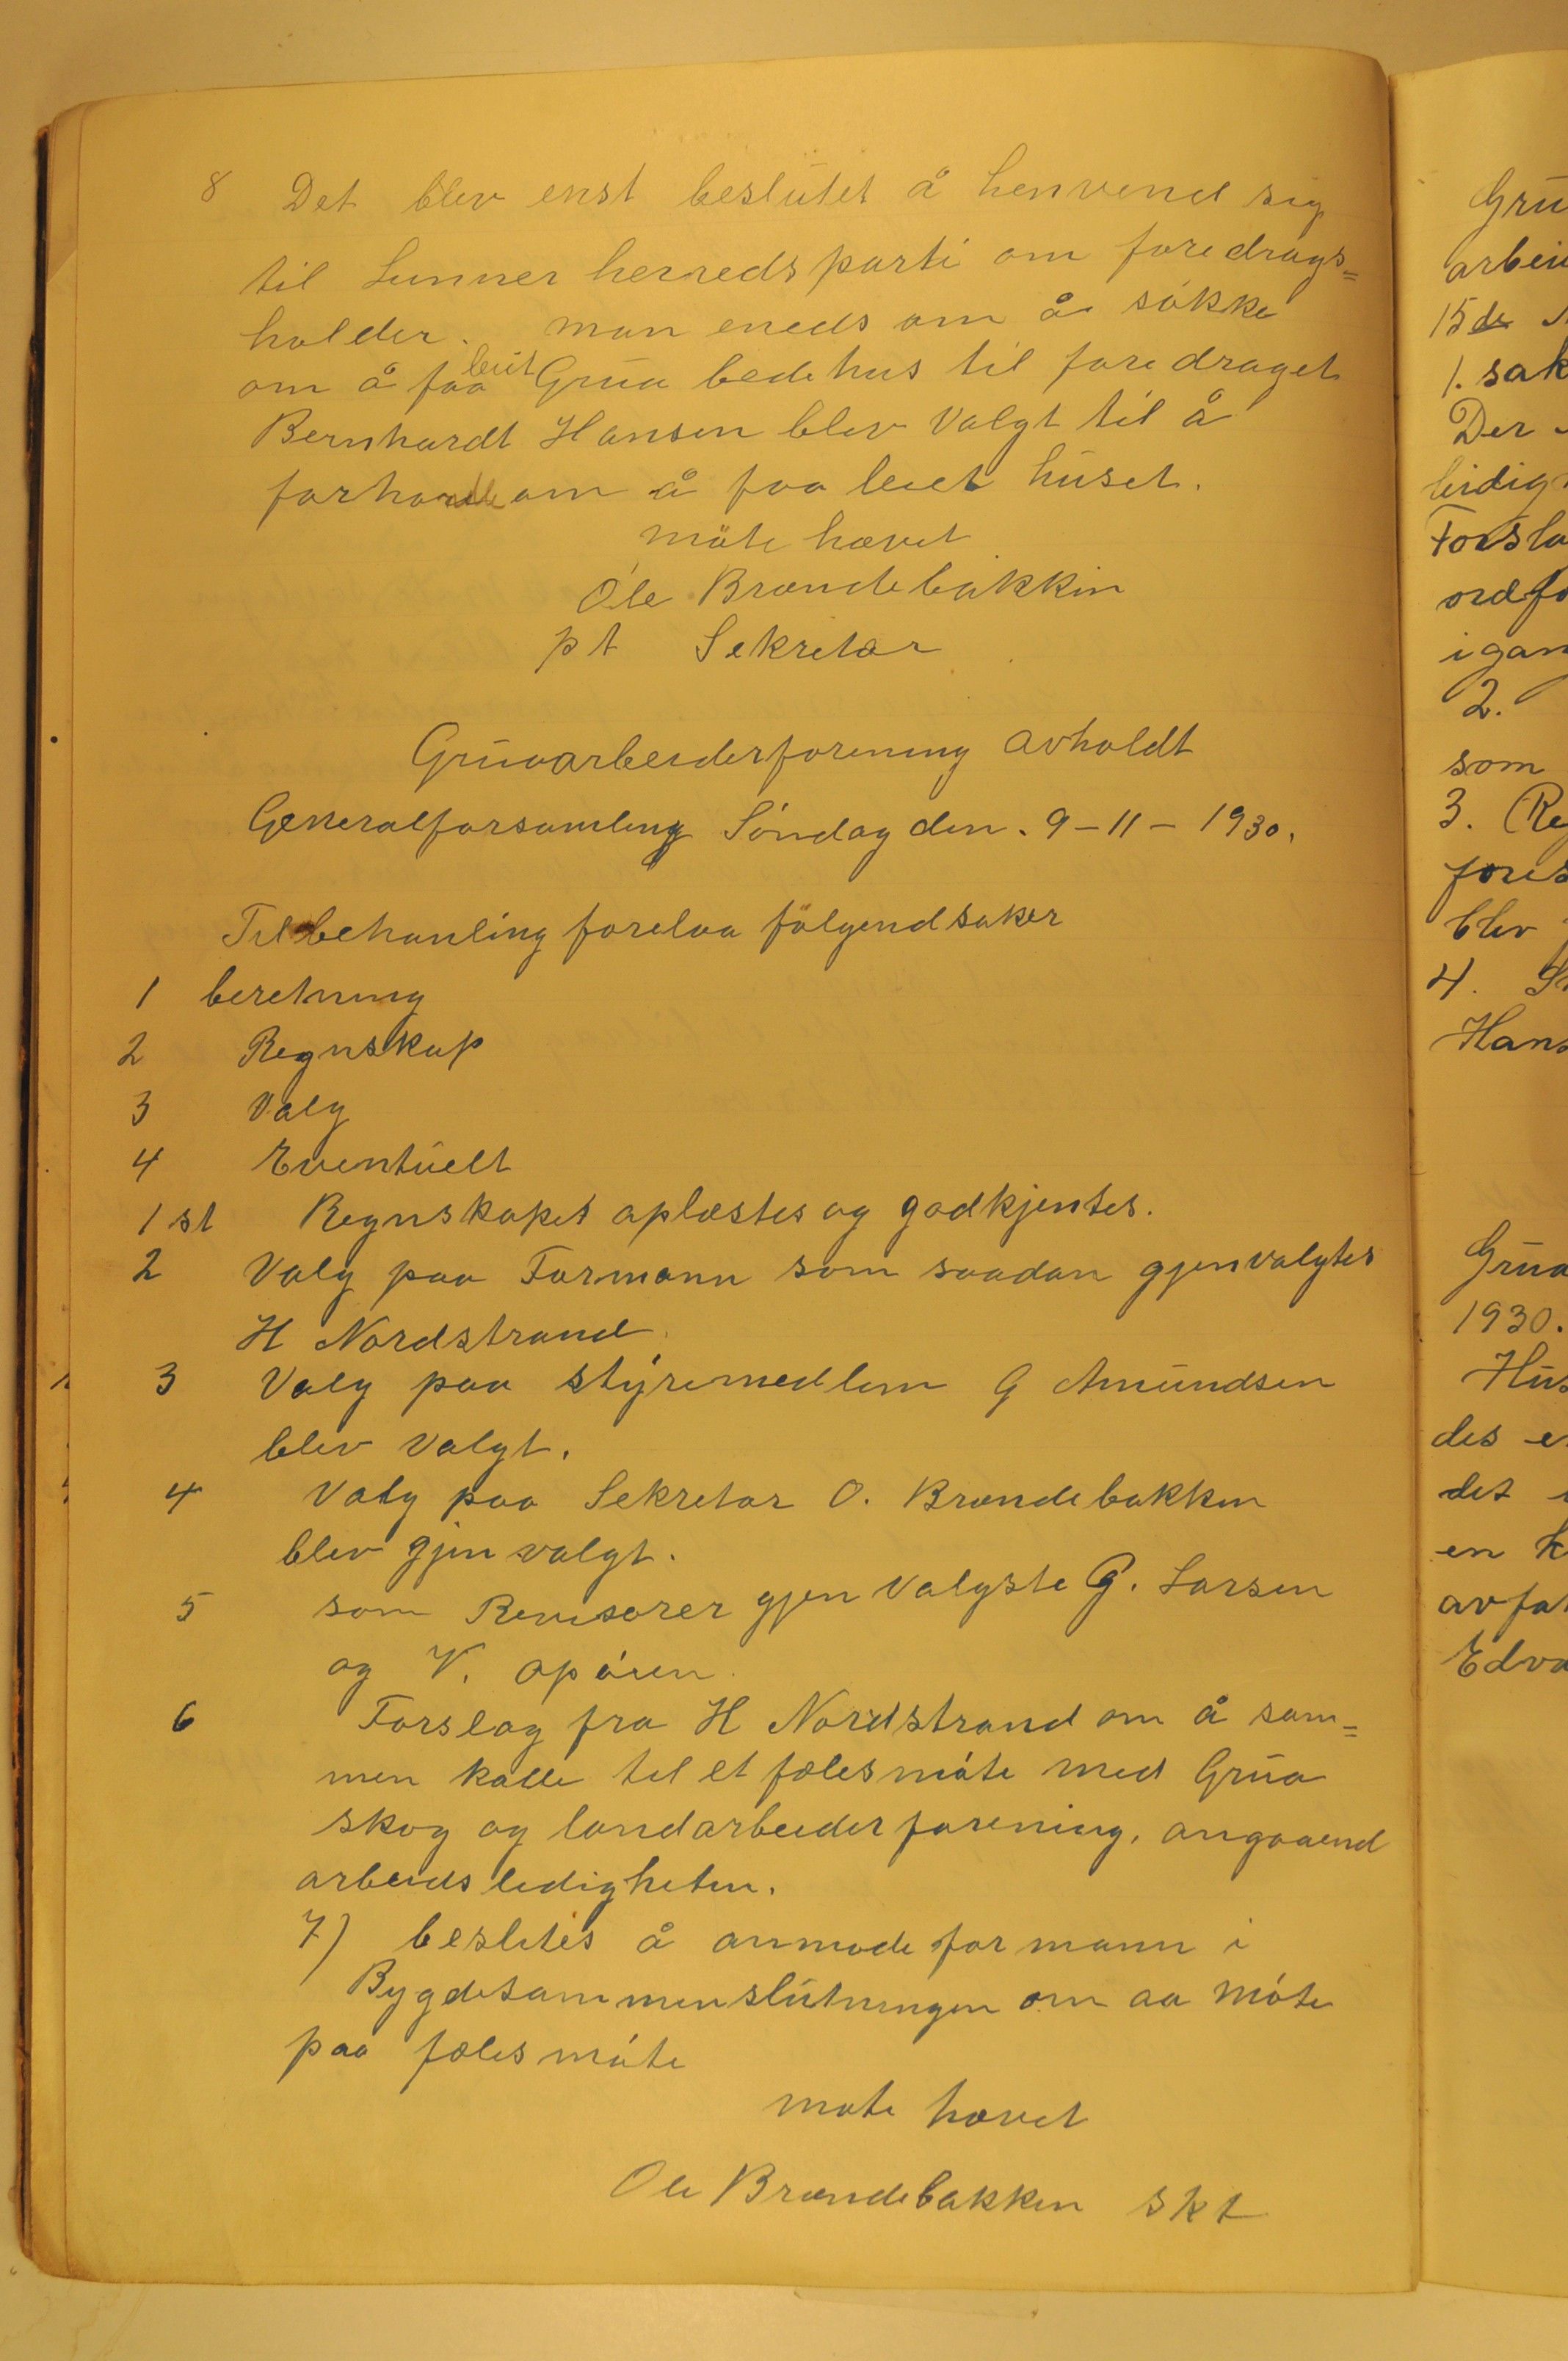 8 Det blev enst beslutet å henvend sig
til Lunner herredsparti om foredrags=
holder. man eneds om å søkke
om å faa leiet Grua bedehus til foredraget
Bernhardt Hansen blev Valgt til å
forhandle om å faa leiet huset.
möte hævet
Ole Brændebakkin
pt Sekretær
Gruaarbeiderforening avholdt
Generalforsamling Søndag den. 9-11-1930.
Til behanling forelaa følgend saker
1 beretning
2 Regnskap
3 Valg
4 Eventuelt
1 st Regnskapet oplæstes og godkjentes.
2 Valg paa Formann som saadan gjenvalgtes
H Nordstrand
3 Valg paa styremedlem G Amundsen
blev Valgt.
4 Valg paa Sekretær O. Brændebakken
blev gjenvalgt.
5 som Revisorer gjen Valgste G. Larsen
og V.
6 Forslag fra H Nordstrand om å sam=
men kalle til et fælesmøte med Grua
skog og landarbeiderforening, angaaend
arbeidsledigheten.
7) beslutes å anmode formann i
Bygdesammenslutningen om aa Møte
paa fælesmøte
møte hævet
Ole Brændebakken skt
Gru
arbei
15de
1. sak
Der
leidig
Forsla
ordfø
igan
2.
som
3. Re
fores
blev
4.
Hans
Grua
1930.
Hus
des e
det
en k
avfa
Edva